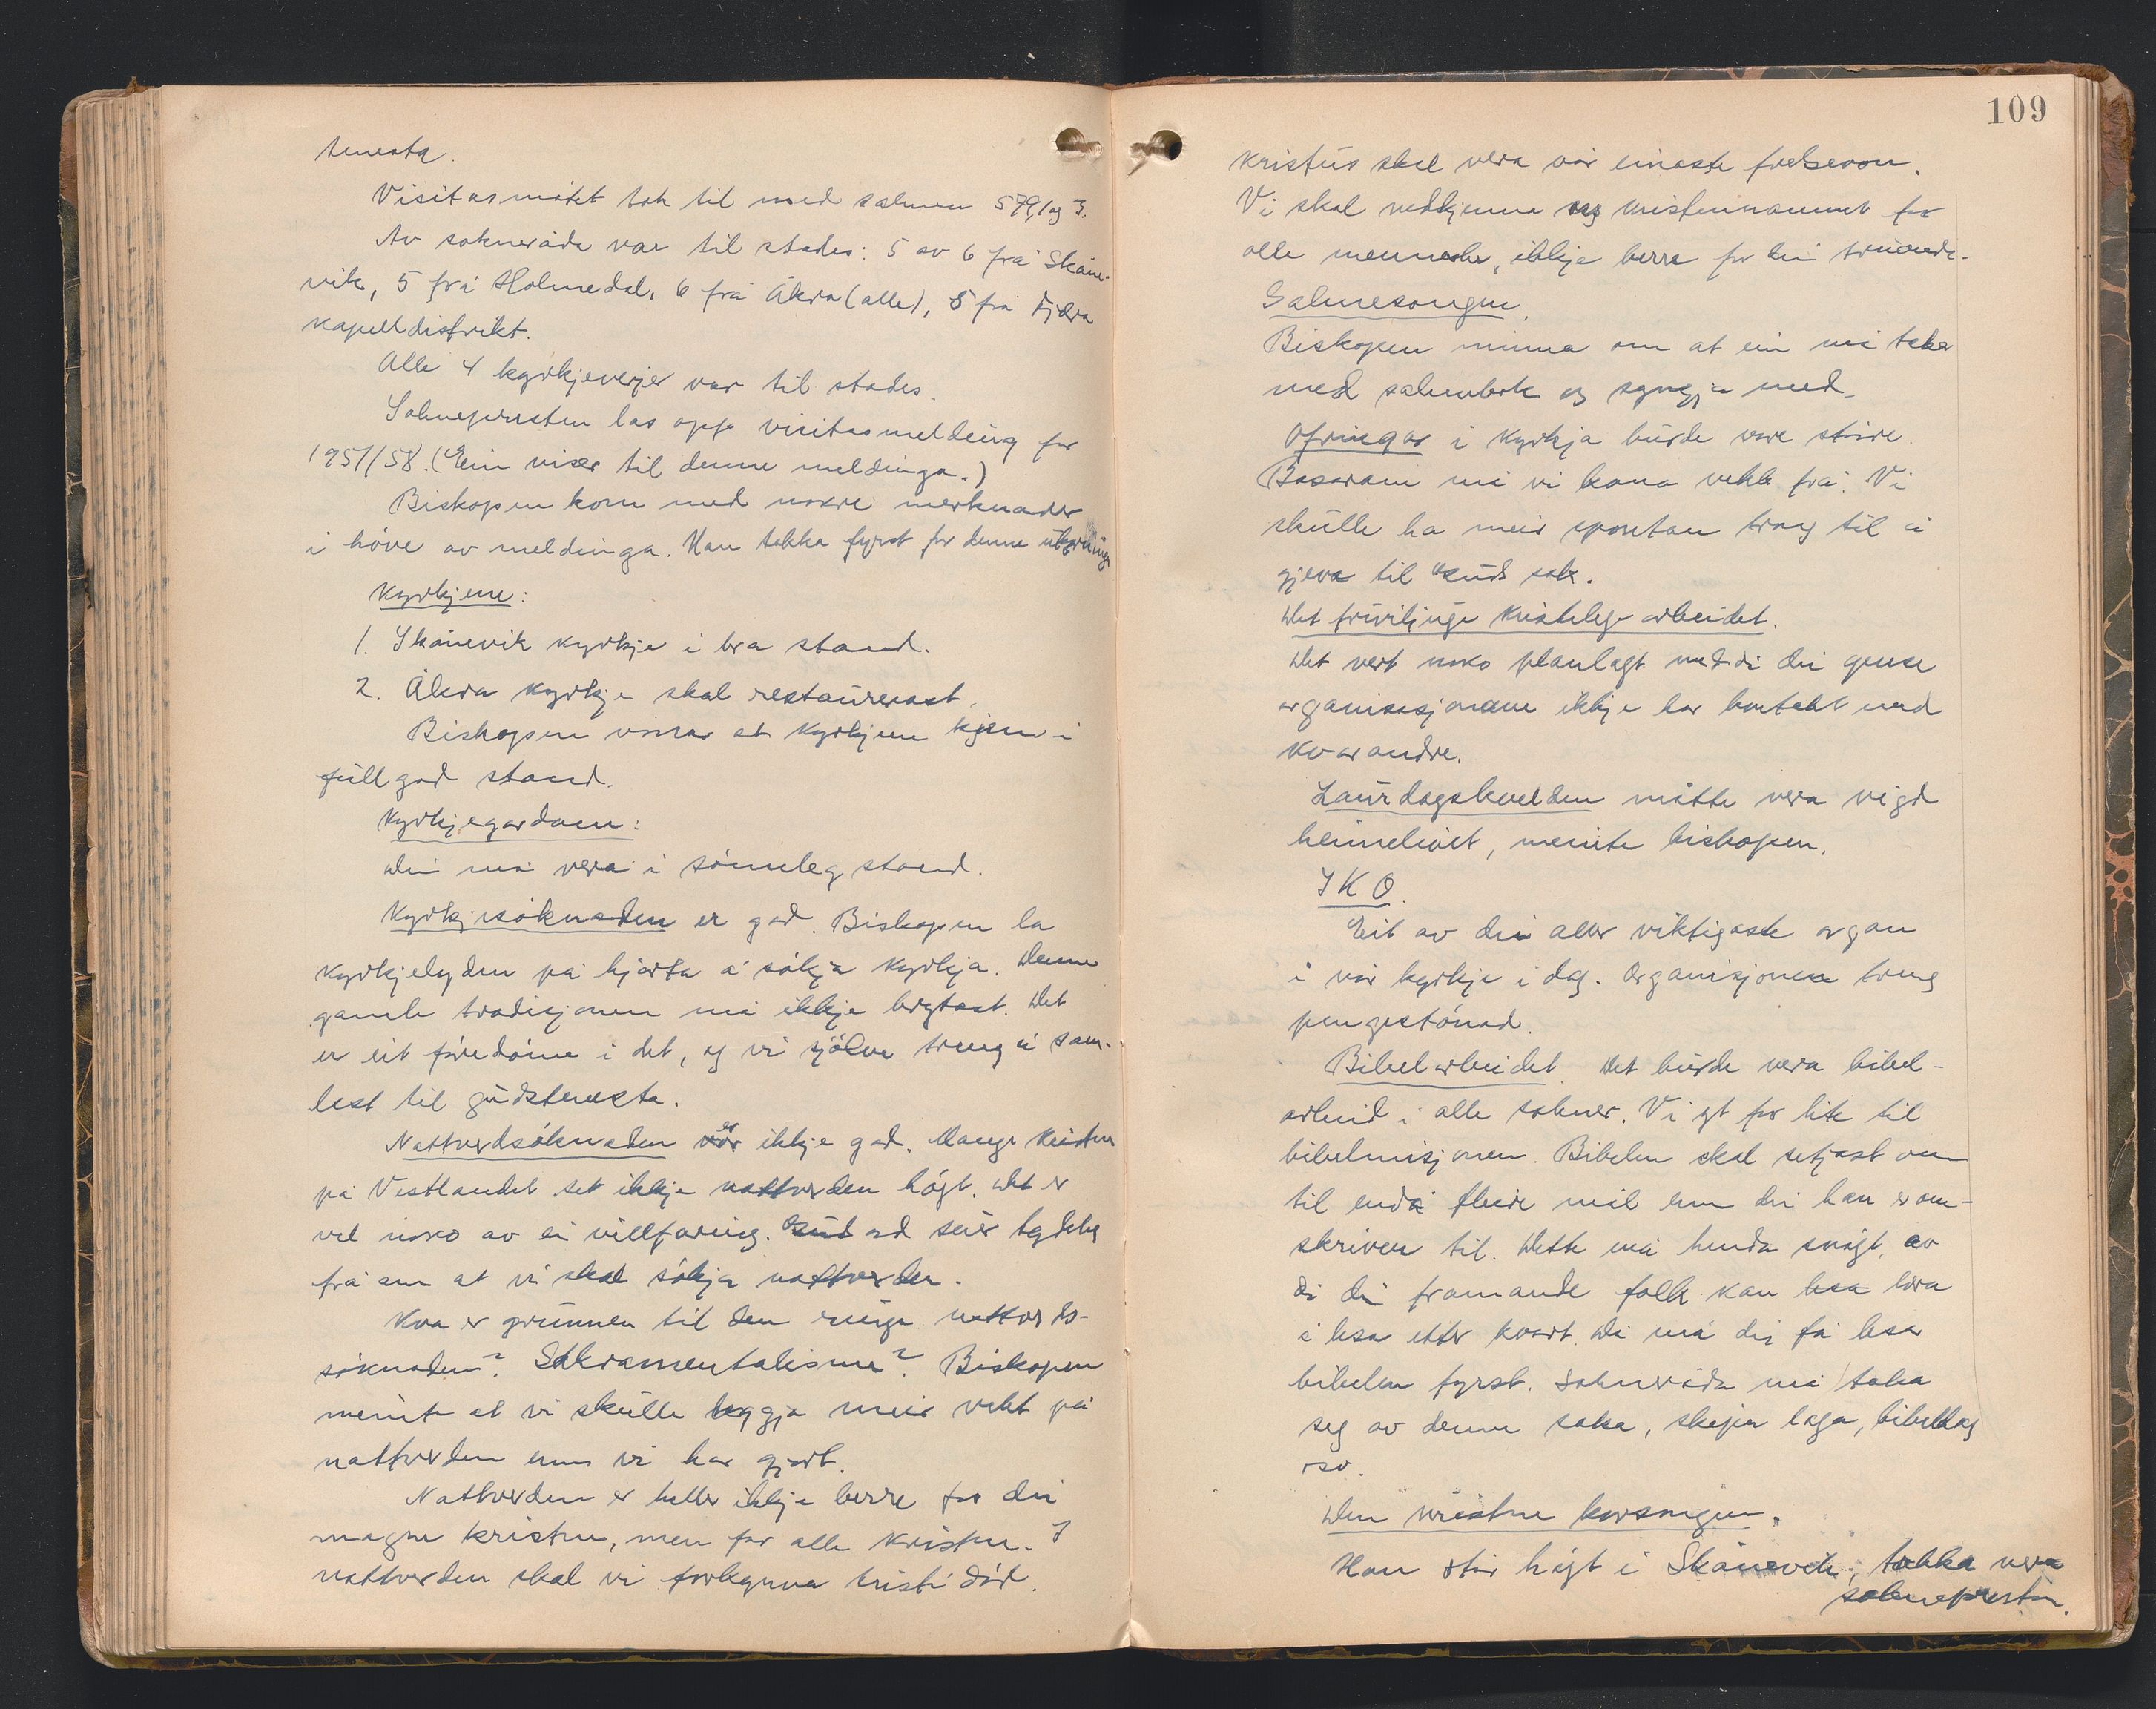 tenesta.
Visitasmøtet tok til med salmen 579,1 og 3.
Av sokneråda var til stades: 5 av 6 frå Skåne-
vik, 5 frå Holmedal, 6 frå Åkra (alle), 5 frå Fjæra
kapelldistrikt.
Alle 4 kyrkjeverjer var til stades.
Soknepresten las opp visitasmeldeing for
1957/58. (Ein viser til denne meldinga.)
Biskopen kom med nokre merknader
i høve av meldinga. Han takka fyrst for denne utgreiinga
Kyrkjene:
1. Skånevik kyrkje i bra stand.
2. Åkra kyrkje skal restaurerast.
Biskopen vonar at kyrkjene kjem i
fullgod stand.
Kyrkjegardane:
Dei må vera i sømeleg stand.
Kyrkjesøknaden er god. Biskopen la
kyrkjelyden på hjarta å søkja kyrkja. Denne
gamle tradisjonen må ikkje brytast. Det
er eit føredøme i det, og vi sjølve treng å sam-
last til gudstenesta.
Nattverdsøknaden er ikkje god. Mange kristne
på Vestlandet set ikkje nattverden høgt. Det er
vel noko av ei villfaring. Guds ord seier tydeleg
frå om at vi skal søkja nattverden.
Kva er grunnen til den ringe nattverds-
søknaden? Sakramentalisme? Biskopen
meinte at vi skulle leggja meir vekt på
nattverden enn vi har gjort.
Nattverden er heller ikkje berre for dei
magne kristne, men for alle kristne. I
nattverden skal vi forkynna Kristi død.
109
Kristus skal vera vår einaste frelsevon.
Vi skal vedkjenna oss kristennamnet for
alle menneske, ikkje berre for dei truande.
Salmesongen.
Biskopen minna om at ein må taka
med salmebok og syngja med.
Ofringar i kyrkja burde vere større.
Basarane må vi koma vekk frå. Vi
skulle ha meir spontan trong til å
gjeva til Guds sak.
Det friviljuge kristelege arbeidet.
Det vert noko planlagt med di dei ymse
organisasjonane ikkje har kontakt med
kvarandre.
Laurdagskvelden måtte vera vigd
heimelivet, meinte biskopen.
IKO.
Eit av dei aller viktigaste organ
i vår kyrkje i dag. Organisjonen treng
pengestønad.
Bibelarbeidet. Det burde vera bibel-
arbeid i alle sokner. Vi gjev for lite til
bibelmisjonen. Bibelen skal setjast om
til endå fleire mål enn dei han er om-
skriven til. Dette må henda snøgt, av
di dei framande folk kan lesa læra
å lesa etter kvart. Då må dei få lesa
bibelen fyrst. Sokneråda må taka
seg av denne saka, skipa laga, bibeldag
osv.
Den kristne korsongen.
Han står høgt i Skånevik, takka vera
soknepresten.